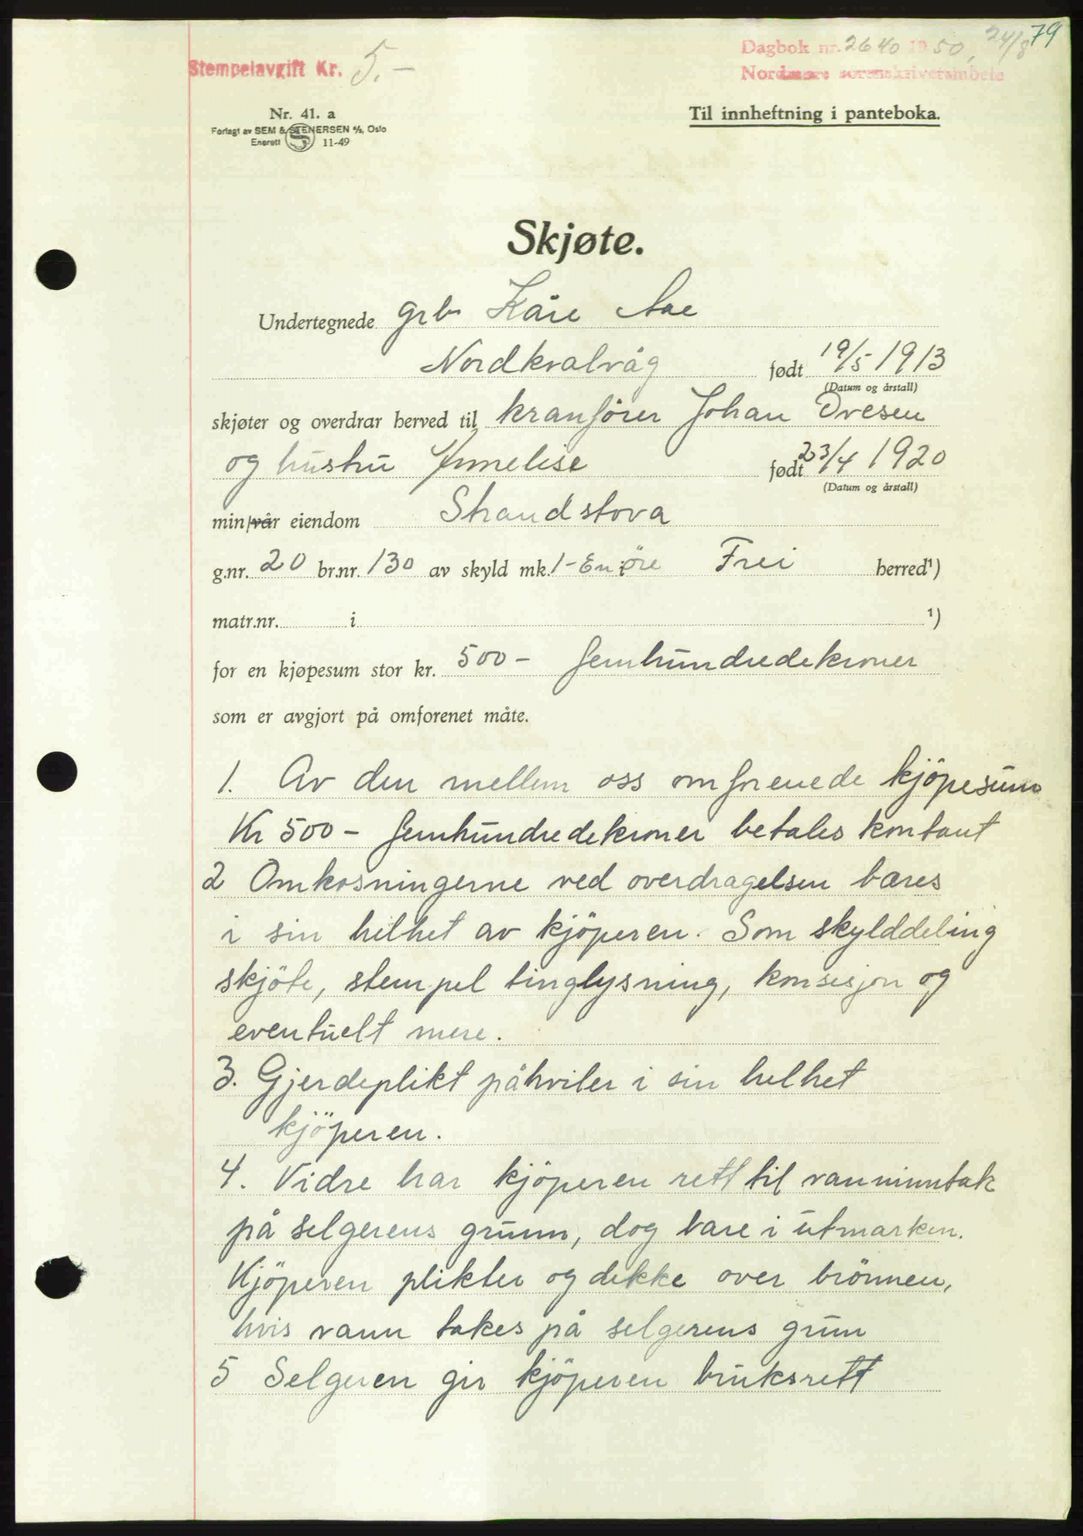 79
Dagbok nr. 2640 1950, 24/8
Nordmøre sorenskriverembete
Stempelavgift Kr. 5.-
Nr. 41. a
Forlagt av SEM & STENERSEN A/S, Oslo
Enerett 11-49
Til innheftning i panteboka.
Skjøte.
Undertegnede grb Kåre Aae
Nordkvalvåg født 19/5 1913
(Datum og årstall)
skjøter og overdrar herved til kranfører Johan Ovesen
og hustru Annelise født 23/4 1920
(Datum og årstall)
min/vår eiendom Strandstova
g.nr. 20 br.nr. 130 av skyld mk. 1- En öre i Frei herred¹)
matr.nr. i ¹)
for en kjøpesum stor kr. 500- femhundredekroner
som er avgjort på omforenet måte.
1. Av den mellem oss omforenede kjöpesum
Kr 500- femhundredekroner betales kontant
2 Omkosningerne ved overdragelsen bæres
i sin helhet av kjöperen. Som skylddeling
skjöte, stempel tinglysning, konsesjon og
eventuelt mere.
3. Gjerdeplikt påhviler i sin helhet
kjöperen.
4. Vidre har kjöperen rett til vanninntak
på selgerens grunn, dog bare i utmarken.
Kjöperen plikter og dekke over brönnen,
hvis vann takes på selgerens grun
5 Selgeren gir kjöperen bruksrett